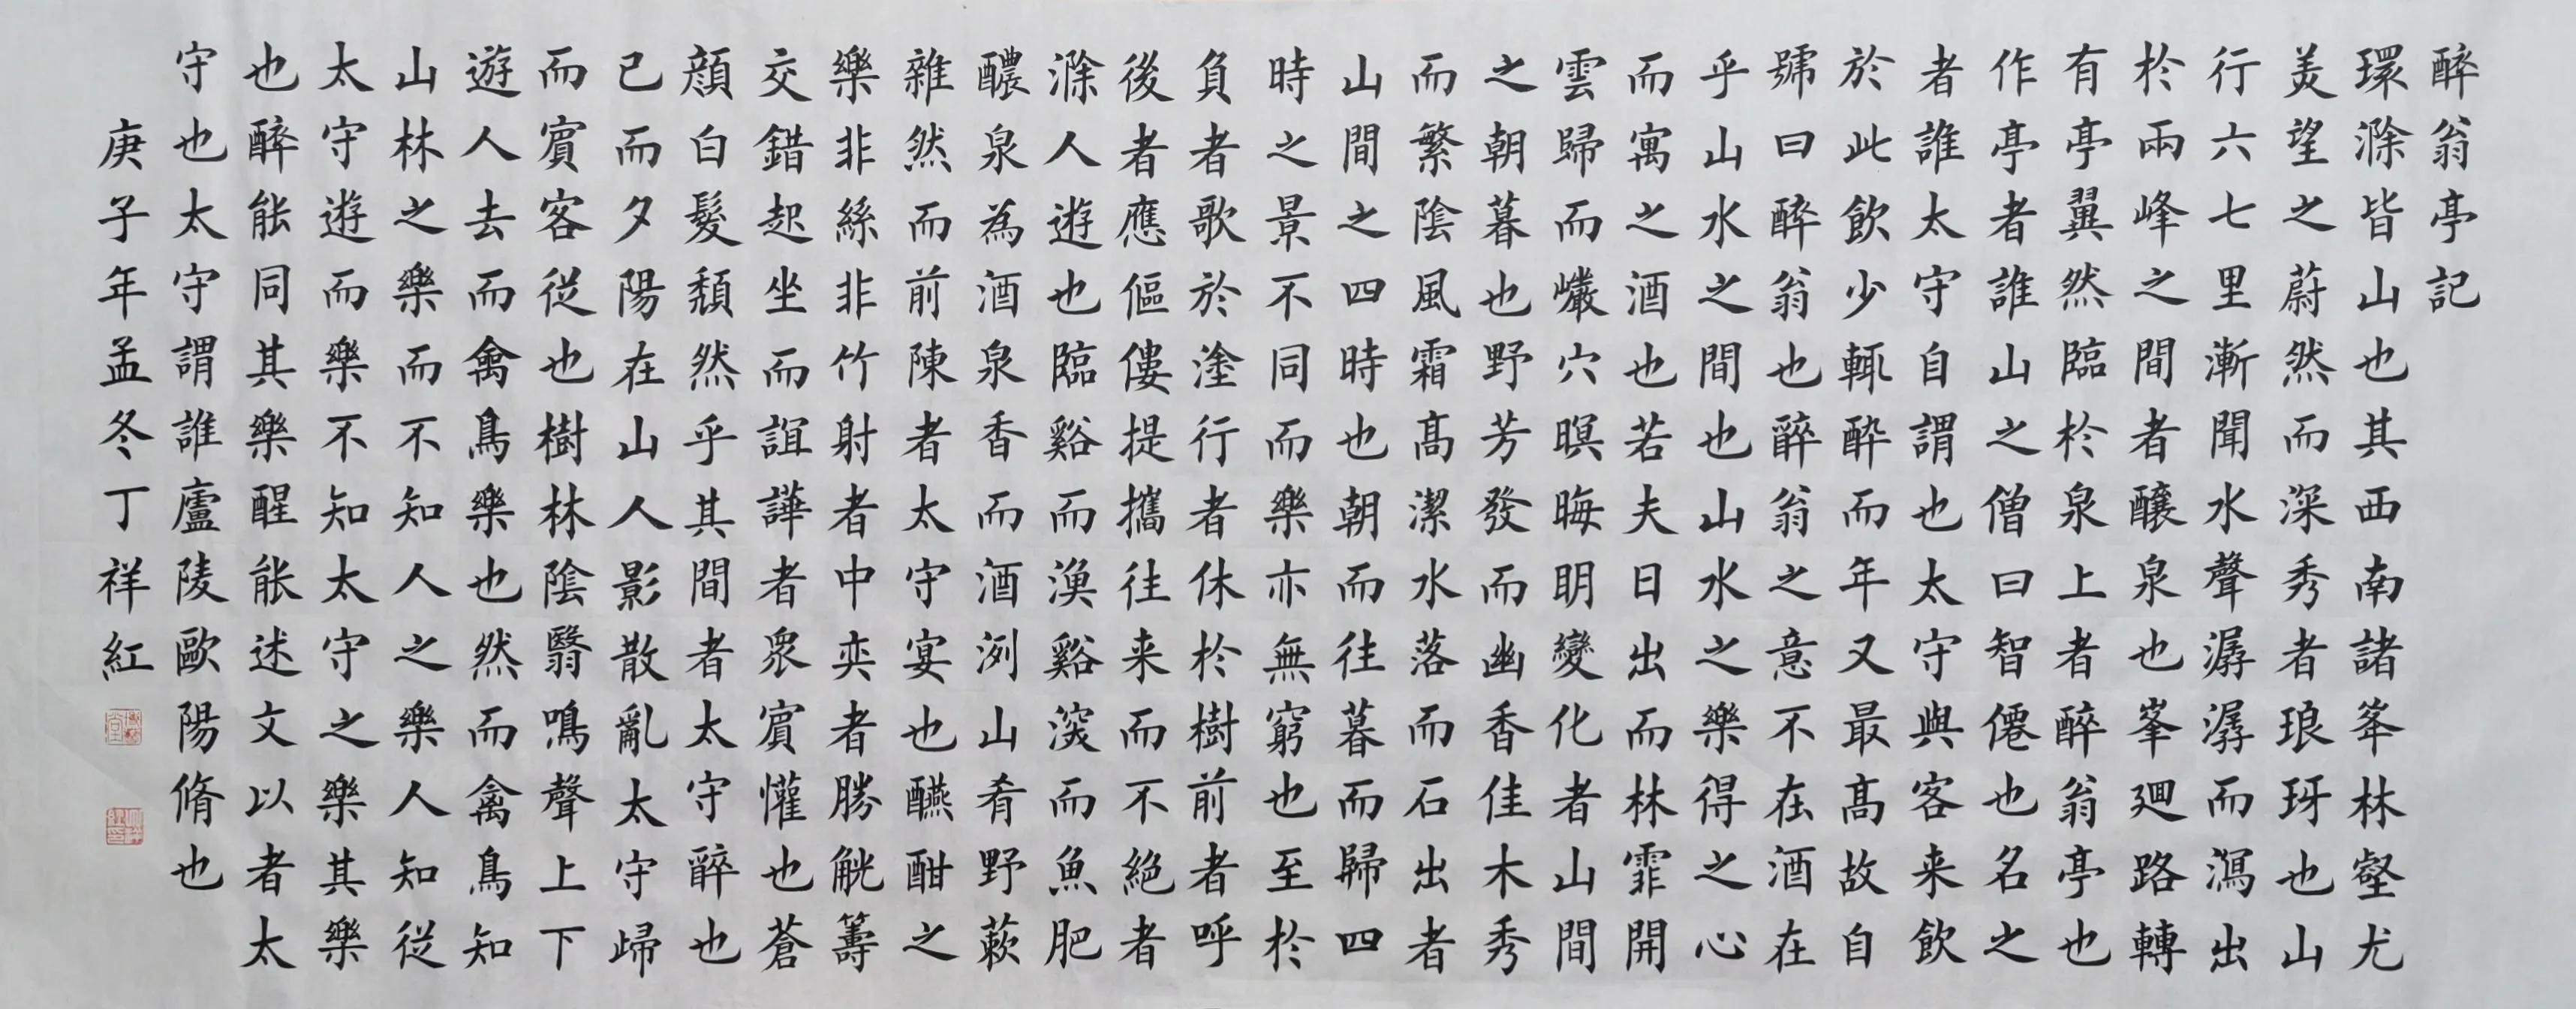 醉翁亭記
環滁皆山也其西南諸峯林壑尤
美望之蔚然而深秀者琅玡也山
行六七里漸聞水聲潺潺而瀉出
於兩峰之間者釀泉也峯廻路轉
有亭翼然臨於泉上者醉翁亭也
作亭者誰山之僧曰智僊也名之
者誰太守自謂也太守與客来飲
於此飲少輒醉而年又最高故自
號曰醉翁也醉翁之意不在酒在
乎山水之間也山水之樂得之心
而寓之酒也若夫日出而林霏開
雲歸而巖穴暝晦明變化者山間
之朝暮也野芳發而幽香佳木秀
而繁陰風霜高潔水落而石出者
山間之四時也朝而往暮而歸四
時之景不同而樂亦無窮也至於
負者歌於塗行者休於樹前者呼
後者應傴僂提攜往来而不絕者
滁人遊也臨谿而漁谿深而魚肥
醲泉為酒泉香而酒洌山肴野蔌
雜然而前陳者太守宴也醼酣之
樂非絲非竹射者中奕者勝觥籌
交錯起坐而諠譁者衆賓懽也蒼
顏白髮頹然乎其間者太守醉也
已而夕陽在山人影散亂太守歸
而賓客從也樹林陰翳鳴聲上下
遊人去而禽鳥樂也然而禽鳥知
山林之樂而不知人之樂人知從
太守遊而樂不知太守之樂其樂
也醉能同其樂醒能述文以者太
守也太守謂誰廬陵歐陽脩也
庚子年孟冬丁祥紅